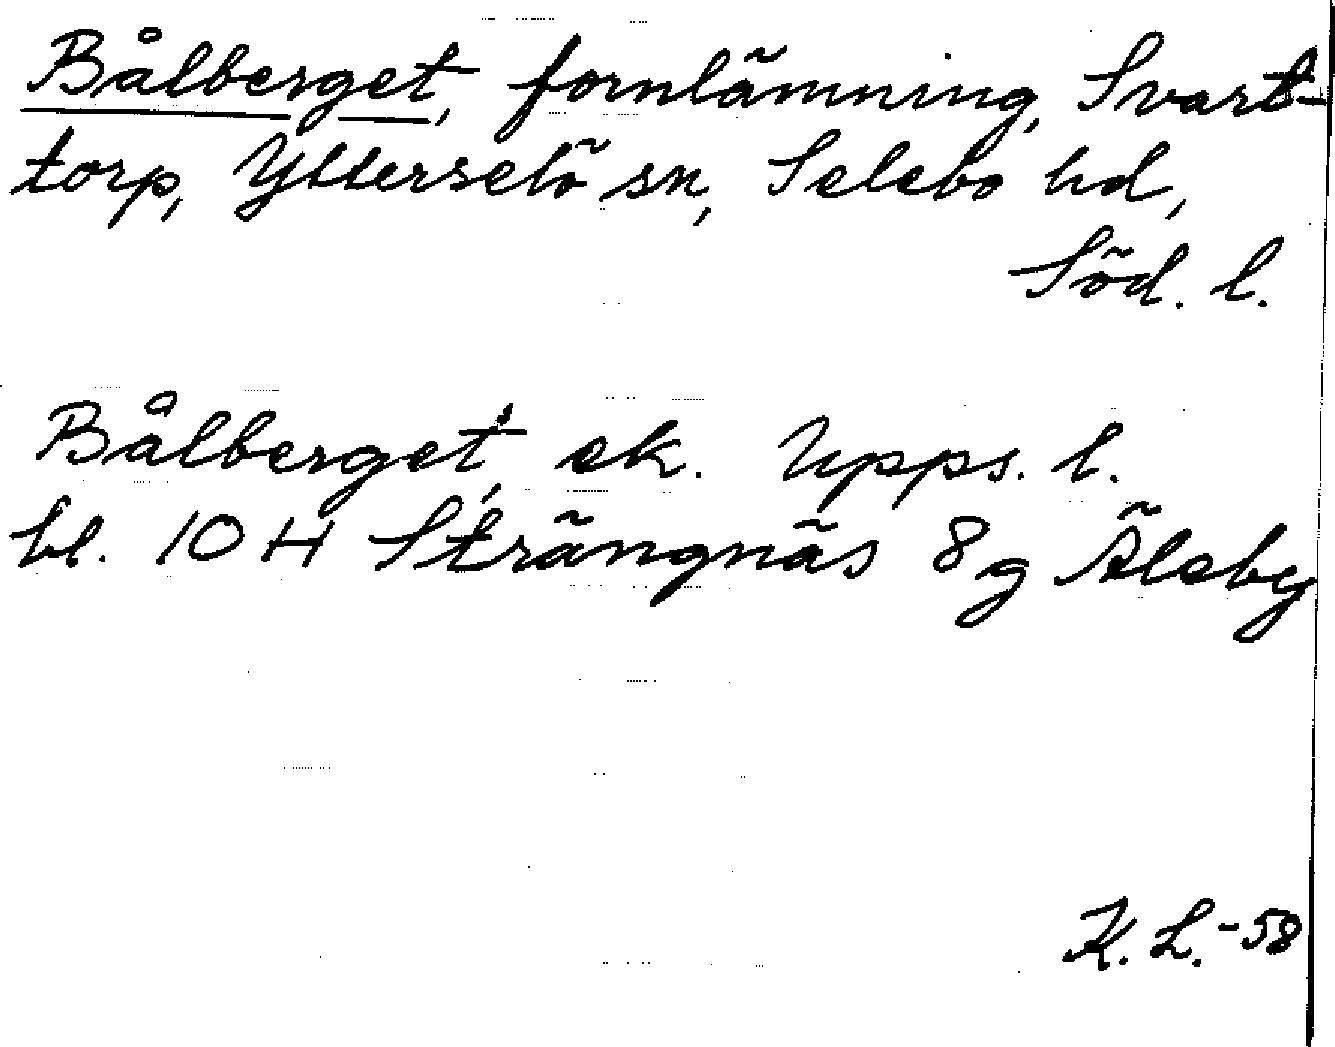 Bålberget, fornlämning, Svart-
torp, Ytterselö sn, Selebo hd,
Söd. l.
Bålberget, ek. Upps. l.
bl. 10 H Strängnäs 8 g Äleby
K. L. -58